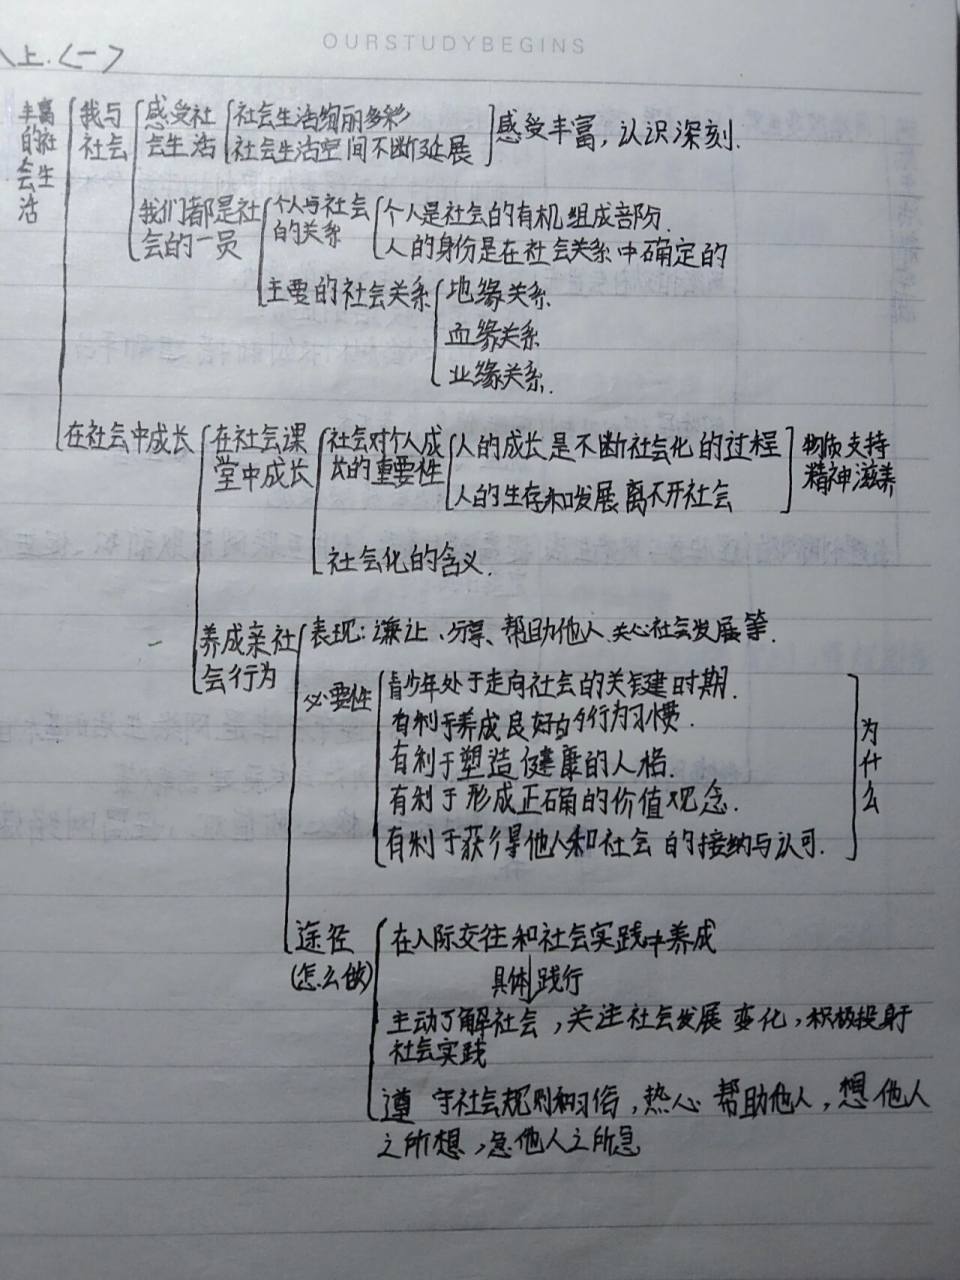 OURSTUDYBEGINS
上.〈一〉
丰富的社会生活
我与社会
感受社会生活
社会生活绚丽多彩
社会生活空间不断延展
感受丰富，认识深刻.
我们都是社会的一员
个人与社会的关系
个人是社会的有机组成部分.
人的身份是在社会关系中确定的
主要的社会关系
地缘关系
血缘关系
业缘关系.
在社会中成长
在社会课堂中成长
社会对个人成长的重要性
人的成长是不断社会化的过程
人的生存和发展离不开社会
物质支持
精神滋养
社会化的含义.
养成亲社会行为
表现：谦让、分享、帮助他人、关心社会发展等.
必要性
青少年处于走向社会的关键时期.
有利于养成良好的行为习惯.
有利于塑造健康的人格.
有利于形成正确的价值观念.
有利于获得他人和社会的接纳与认可.
为什么
途径
(怎么做)
在人际交往和社会实践中养成
具体践行
主动了解社会，关注社会发展变化，积极投身于
社会实践
遵守社会规则和习俗，热心帮助他人，想他人
之所想，急他人之所急